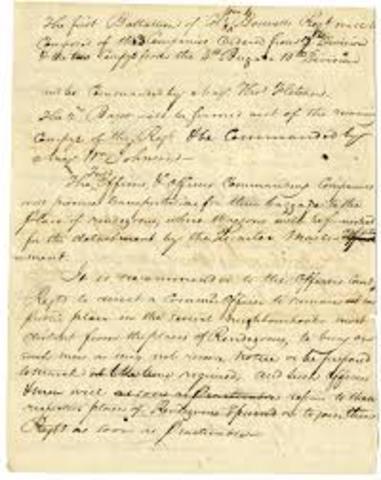 The first Battalion of Wm Boswells Regt will be
Composed of the 3 Companies Ordered from 9th Division
& the two Compys from the 4th Brigade 10th Division
will be Commanded by Maj. Thos Fletcher.
The 2d Battn will be formed out of the remaining
Compys of the Regt & be Commanded by
Maj Wm Johnson
The Officers & Officers Commanding Companies
will procure transportation for their baggage to the
place of rendezvous, where Waggons will be furnished
for the detachment by the Quarter Master
ment.
It is recommended to the Officers Comdg
Regts to direct a Commd Officer to remain at some
public place in the several neighbourhoods most
distant from the places of Rendezvous, to bring on
such men as may not receive notice or be prepared
to march at the time required, and such Officers
& men will as soon as Practicable repair to their
respective places of Rendezvous & proceed on to join their
Regts as soon as Practicable